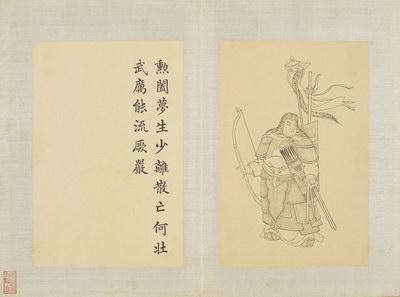 勲闔夢生少離散亡何壯
武鷹能流厥嚴